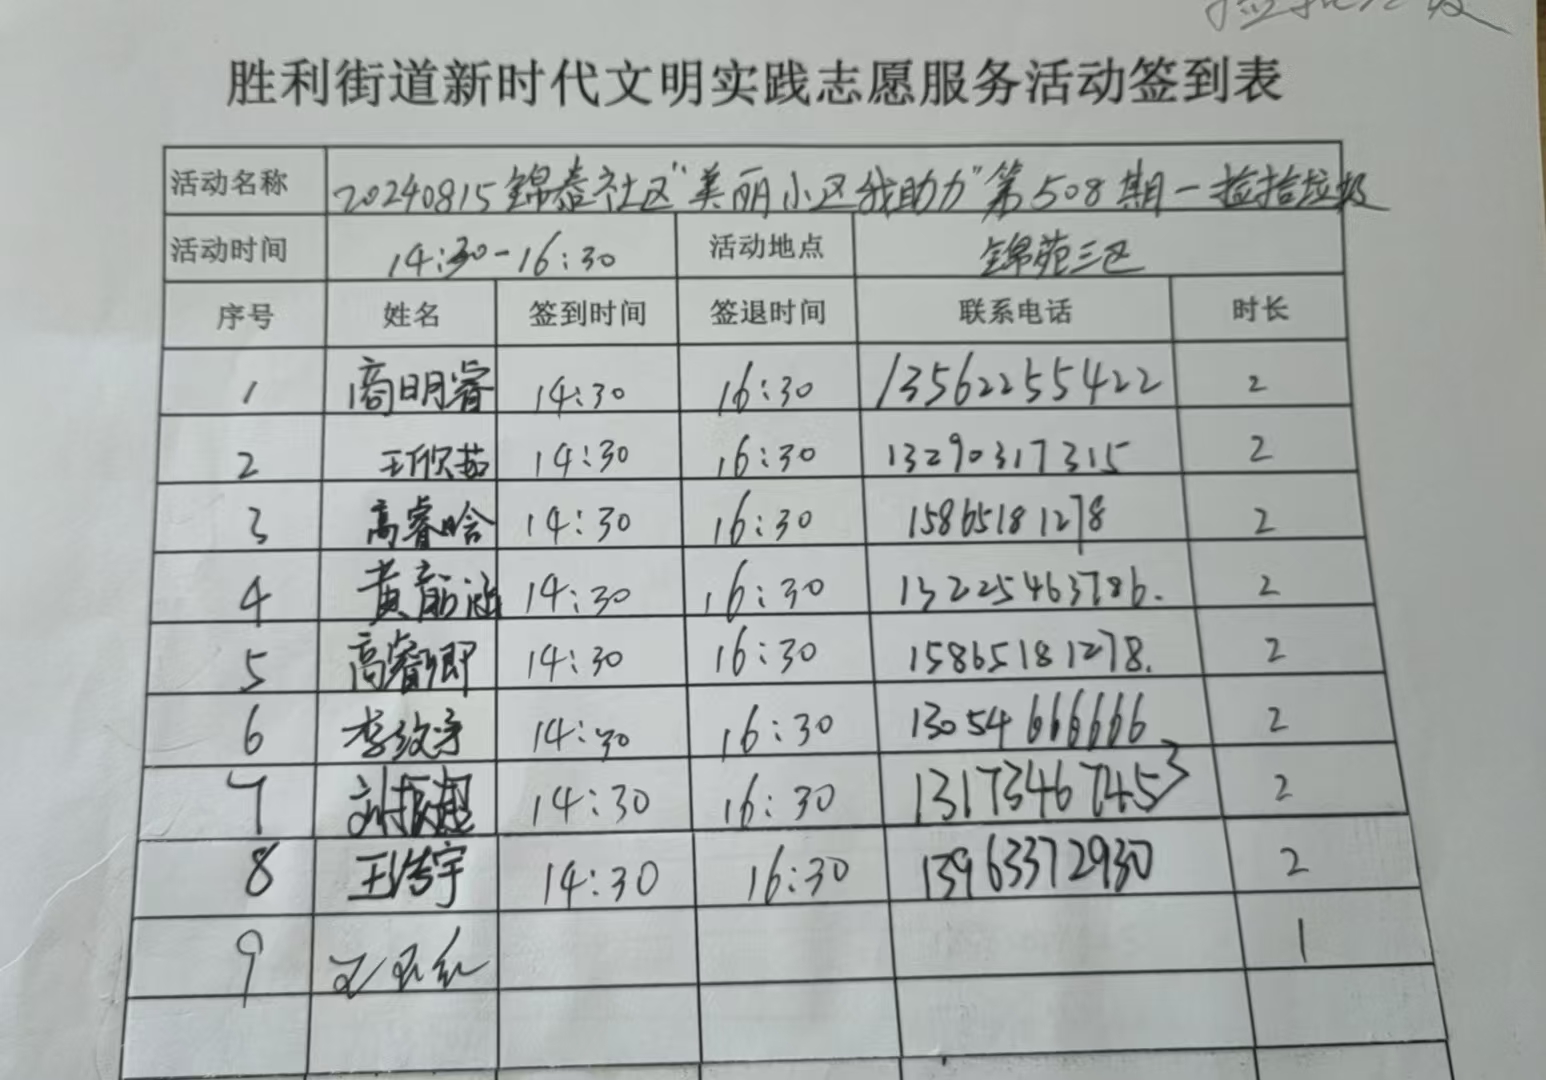 胜利街道新时代文明实践志愿服务活动签到表
活动名称 20240815锦泰社区"美丽小区我助力"第508期—捡拾垃圾
活动时间 14:30-16:30 活动地点 锦苑三区
序号 姓名 签到时间 签退时间 联系电话 时长
1 商明睿 14:30 16:30 13562255422 2
2 王欣茹 14:30 16:30 13290317315 2
3 高睿晗 14:30 16:30 15865181278 2
4 黄 14:30 16:30 13225463786. 2
5 高睿卿 14:30 16:30 15865181278. 2
6 李 14:30 16:30 13054666666 2
7 刘振超 14:30 16:30 13173467453 2
8 王浩宇 14:30 16:30 13963372930 2
9 1